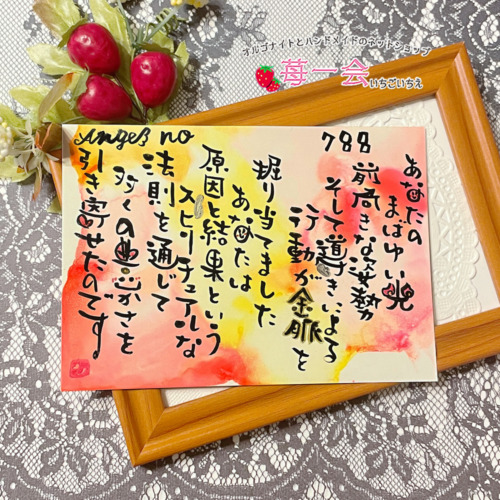 オルゴナイトとハンドメイドのネットショップ
苺一会
いちごいちえ
Angel no
788
あなたの
まばゆい光
前向きな姿勢
そして導きによる
行動が金脈を
掘り当てました
あなたは
原因と結果という
スピリチュアルな
法則を通じて
多くの豊かさを
引き寄せたのです